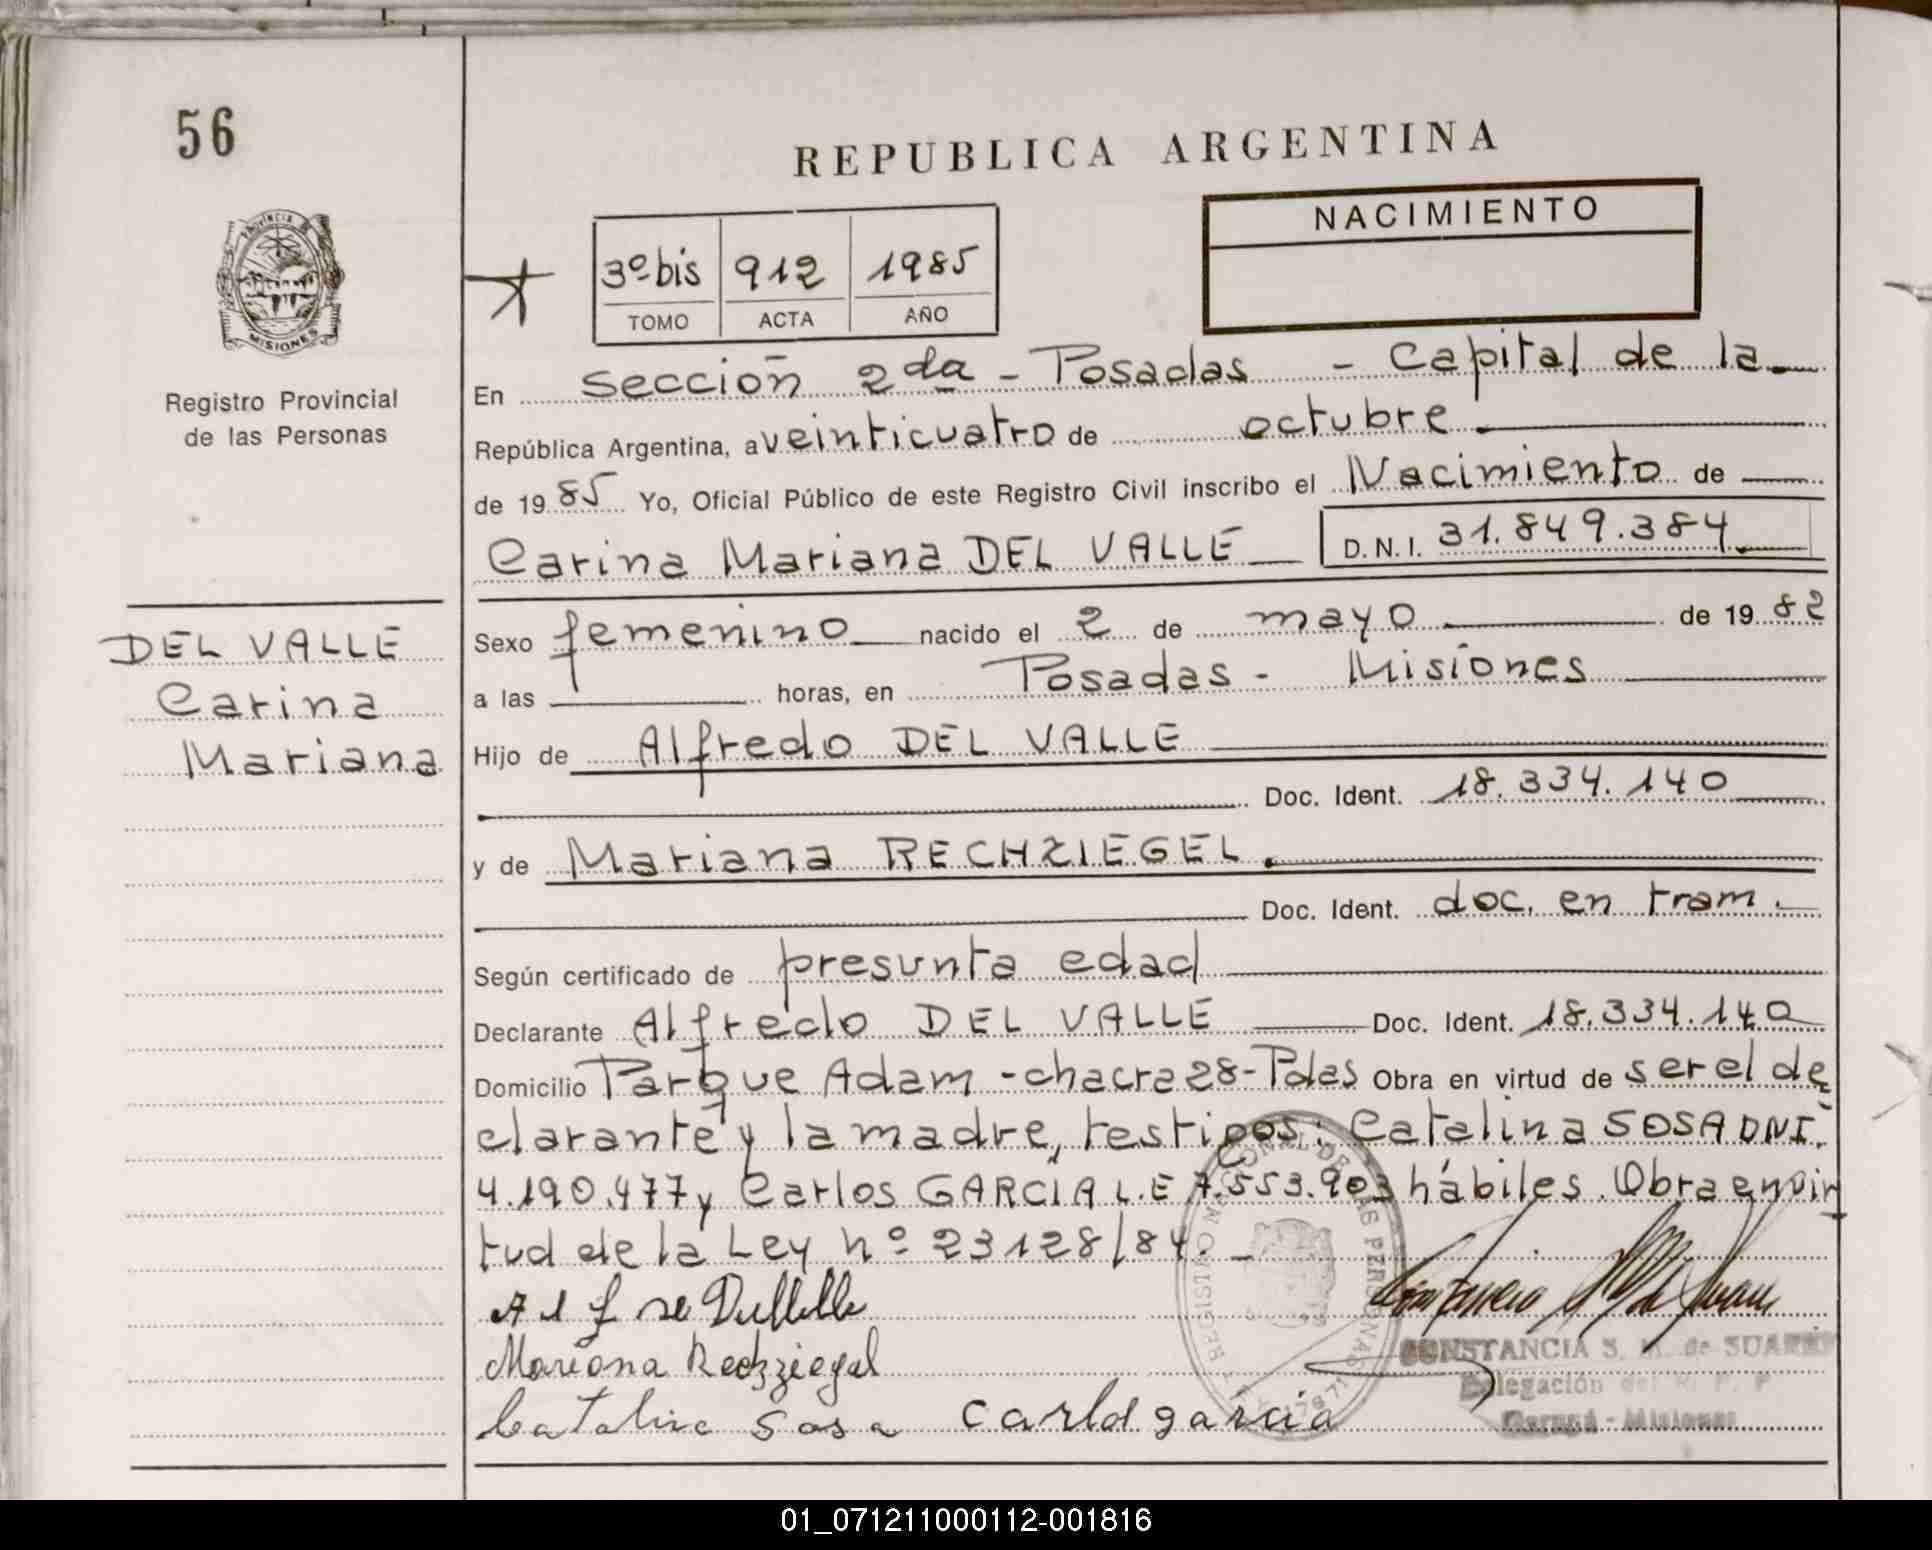 56
REPUBLICA ARGENTINA
PROVINCIA
MISIONES
Registro Provincial
de las Personas
3º bis 912 1985
TOMO ACTA AÑO
NACIMIENTO
En sección 2da - Posadas - Capital de la
República Argentina, a veinticuatro de octubre
de 1985 Yo, Oficial Público de este Registro Civil inscribo el Nacimiento de
Carina Mariana DEL VALLE D.N.I. 31.849.384
DEL VALLE
Carina
Mariana
Sexo femenino nacido el 2 de mayo de 1982
a las horas, en Posadas - Misiones
Hijo de Alfredo DEL VALLE
Doc. Ident. 18.334.140
y de Mariana RECHZIEGEL.
Doc. Ident. doc. en tram.
Según certificado de presunta edad
Declarante Alfredo DEL VALLE Doc. Ident. 18.334.140
Domicilio Parque Adam - chacra 28 - Pdas Obra en virtud de ser el de
clarante y la madre, testigos: Catalina SOSA DNI.
4.190.477 y Carlos GARCÍA L.E 7.553.903 hábiles. Obra en vir
tud de la Ley nº 23128/84. -
Mariana Rechziegel
Catalina Sosa Carlos garcia
CONSTANCIA S. M. de SUAREZ
Delegación del R. P. P.
Garupá - Misiones
01_071211000112-001816